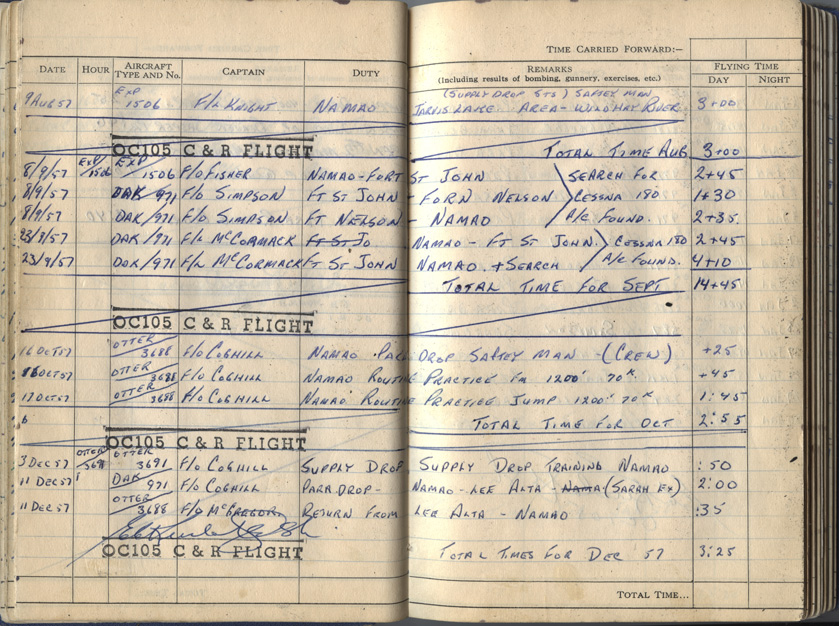 TIME CARRIED FORWARD:–
DATE HOUR AIRCRAFT TYPE AND NO. CAPTAIN DUTY REMARKS (Including results of bombing, gunnery, exercises, etc.) FLYING TIME DAY NIGHT
(SUPPLY DROP STS) SAFTEY MAN
9 AUG 57 EXP 1506 F/L KNIGHT NAMAO JARVIS LAKE AREA - WILDHAY RIVER 3+00
OC105 C & R FLIGHT TOTAL TIME AUG 3+00
8/9/57 EXP/1506 EXP 1506 F/O FISHER NAMAO-FORT ST JOHN SEARCH FOR 2+45
8/9/57 DAK 971 F/O SIMPSON FT ST JOHN - FORN NELSON CESSNA 180 1+30
8/9/57 DAK/971 F/O SIMPSON FT NELSON - NAMAO A/C FOUND. 2+35
23/9/57 DAK/971 F/L McCORMACK FT ST JO NAMAO - FT ST JOHN. CESSNA 180 2+45
23/9/57 DAK/971 F/L McCORMACK FT ST JOHN NAMAO. + SEARCH A/C FOUND. 4+10
TOTAL TIME FOR SEPT 14+45
OC105 C & R FLIGHT
16 OCT 57 OTTER 3688 F/O COGHILL NAMAO PARA DROP SAFTEY MAN - (CREW) +25
16 OCT 57 OTTER 3688 F/O COGHILL NAMAO ROUTINE PRACTICE FM 1200' 70K +45
17 OCT 57 OTTER 3688 F/O COGHILL NAMAO ROUTINE PRACTICE JUMP 1200' 70K 1:45
6 TOTAL TIME FOR OCT 2:55
OC105 C & R FLIGHT
3 DEC 57 OTTER 3691 OTTER 3691 F/O COGHILL SUPPLY DROP SUPPLY DROP TRAINING NAMAO :50
11 DEC 57 DAK 971 F/O COGHILL PARADROP - NAMAO - LEE ALTA - NAMA (SARAH EX) 2:00
11 DEC 57 OTTER 3688 F/O McGREGOR RETURN FROM LEE ALTA - NAMAO :35
OC105 C & R FLIGHT TOTAL TIMES FOR DEC 57 3:25
TOTAL TIME...